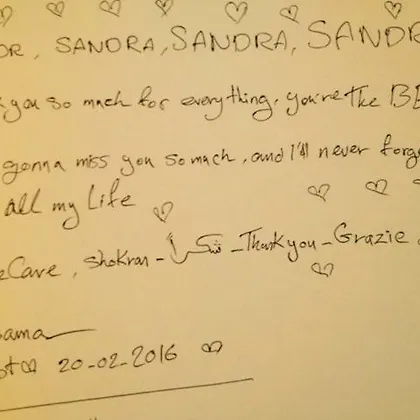 SANDRA, SANDRA, SANDR
you so much for everything, you're The
gonna miss you so much, and I'll never
all my Life
shokran - شكراً - Thank you - Grazie
20-02-2016